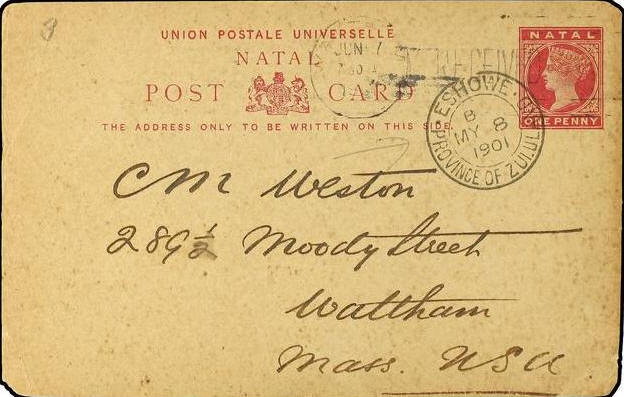 UNION POSTALE UNIVERSELLE
NATAL
POST CARD
THE ADDRESS ONLY TO BE WRITTEN ON THIS SIDE.
NATAL
ONE PENNY
JUN 7
RECEIVED
ESHOWE
B
MY 8
1901
PROVINCE OF ZULUL
CM Weston
289½ Moody Street
Waltham
Mass. USA